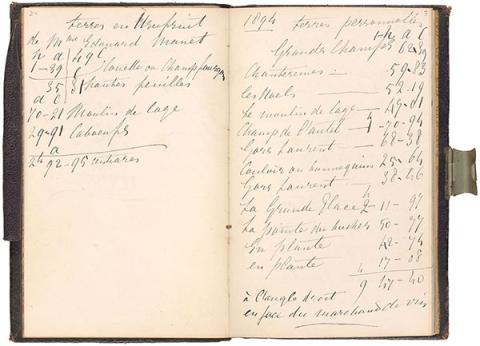 2
terres en Usufruit
de Mme Edouard Manet
h a c
39 49
35 31 hautes feuilles
a c
70-21 Moulin de Cage
29-91 Cabœufs
a
92-95 centiares
1894 terres personnelles
h a c
Grandes Champs 62-89
Chanterennes - 59-83
Les Naels - 52-19
Le moulin de Cage - 49-01
Champ de l'autel - 1-70-94
Gars Laurent - 68-38
Couloir ou hannequins 25-64
Gars Laurent - 38-46
La Grande Glace 2-11-97
La pointe des buches 50-77
En plante 42-74
en plante 17-08
9 47-40
à l'angle droit
en face du marchand de vin